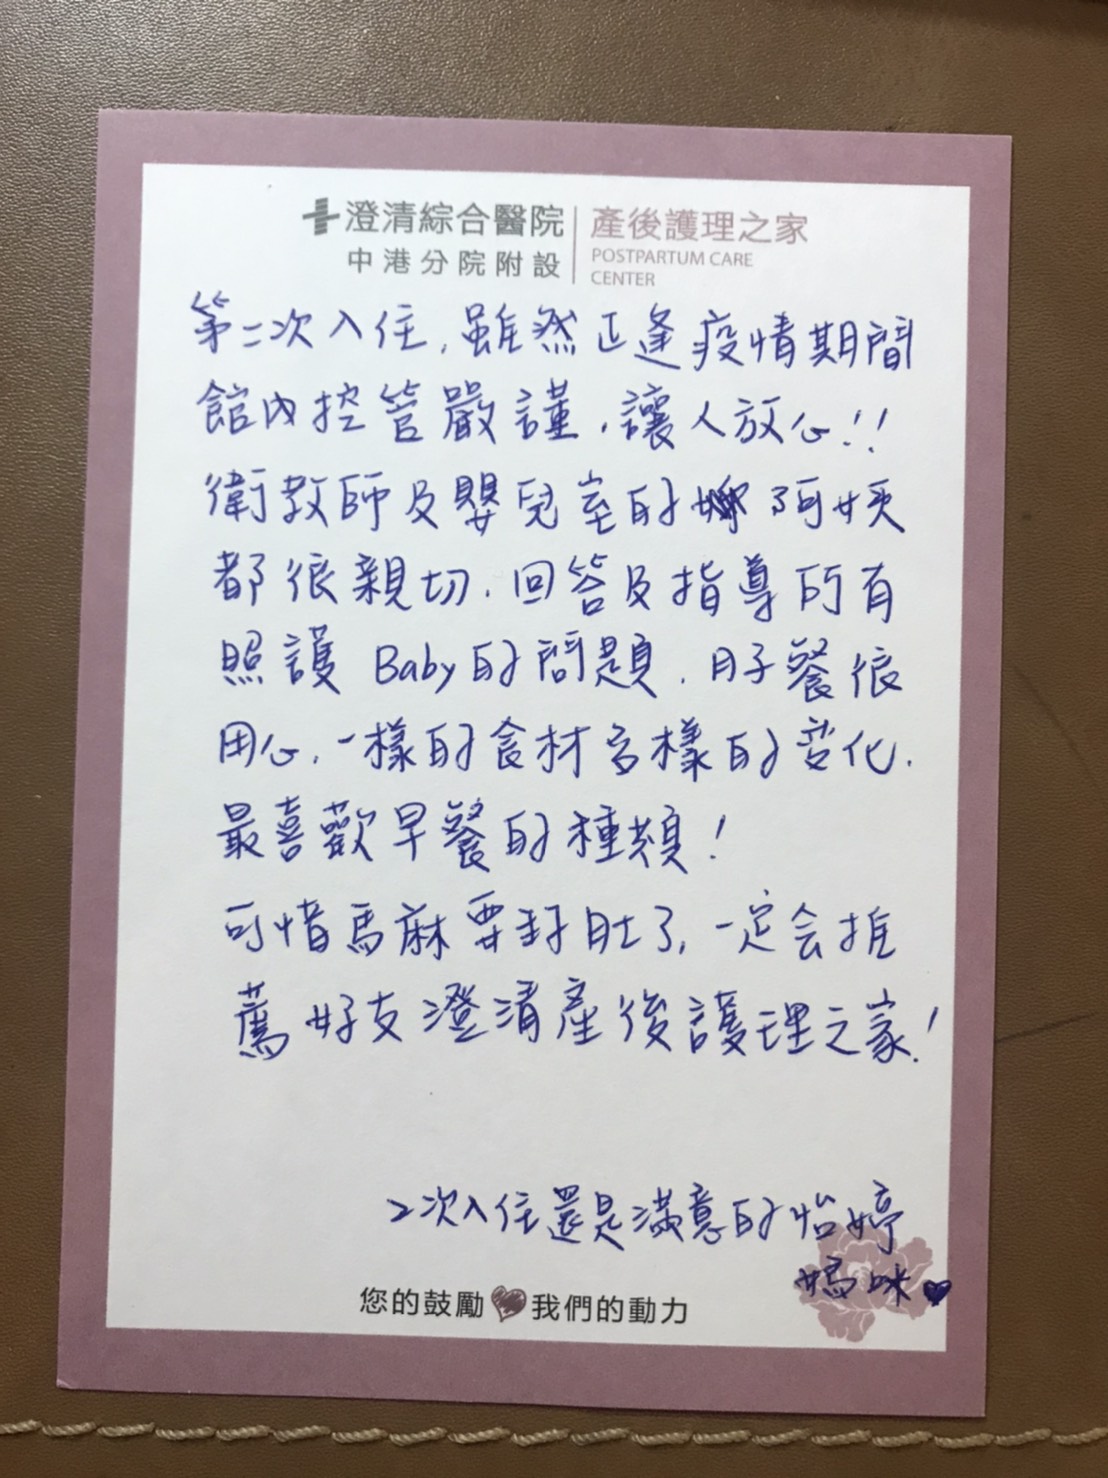 澄清綜合醫院
中港分院附設
產後護理之家
POSTPARTUM CARE
CENTER
第二次入住,雖然正逢疫情期間
館內控管嚴謹,讓人放心!!
衛教師及嬰兒室的阿姨
都很親切.回答及指導所有
照護Baby的問題.月子餐很
用心,一樣的食材多樣的变化.
最喜歡早餐的種類!
可惜馬麻要封肚了,一定会推
薦好友澄清產後護理之家!
2次入住還是滿意的怡婷
媽咪♥
您的鼓勵♥我們的動力